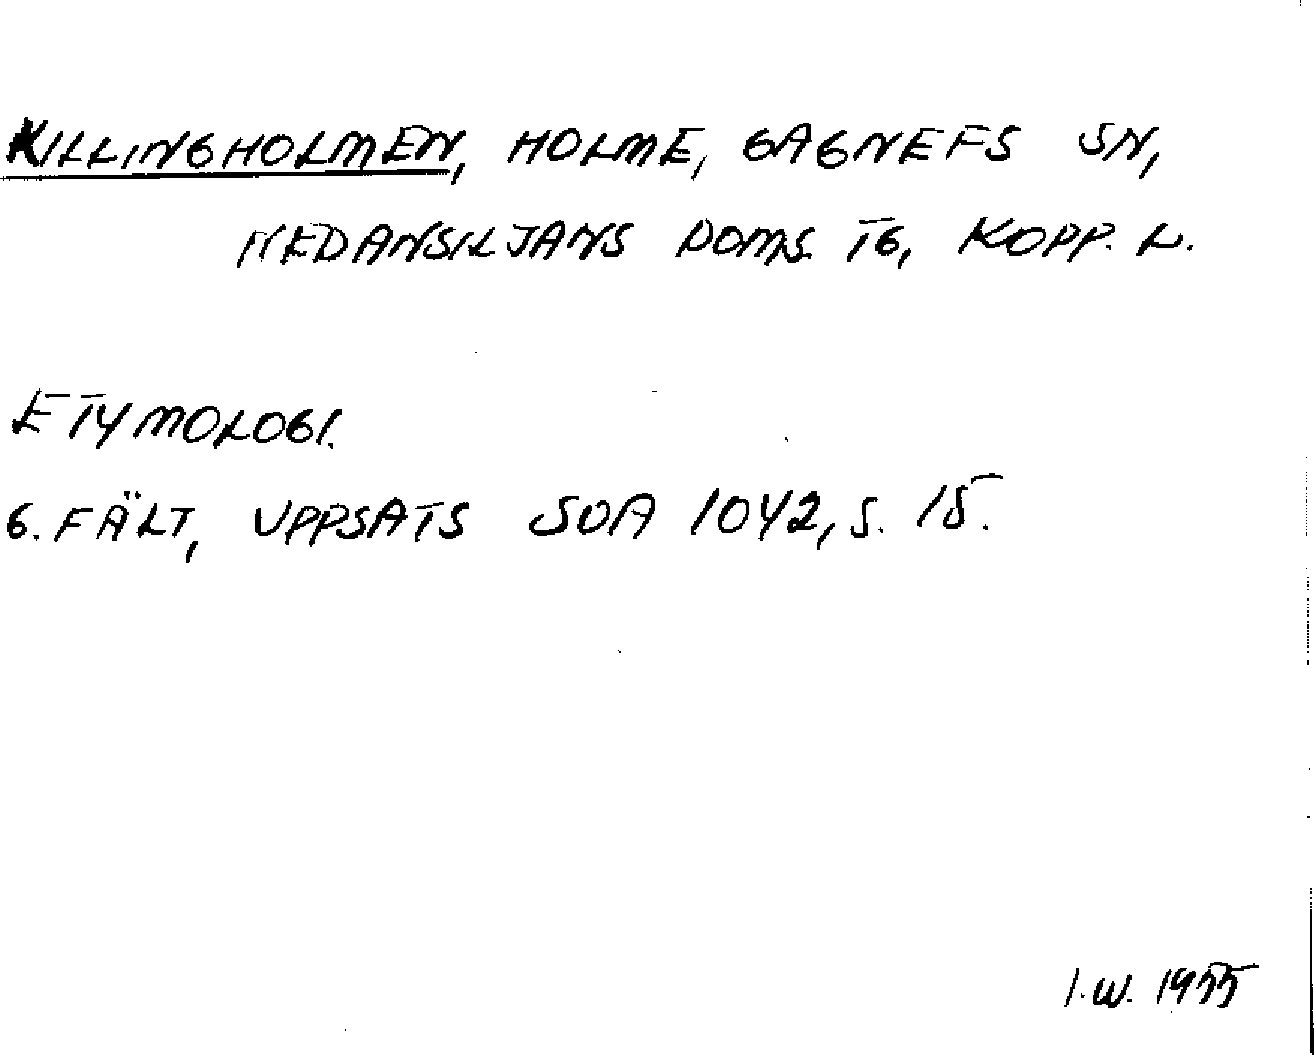 KILLINGHOLMEN, HOLME, GAGNEFS SN,
NEDANSILJANS DOMS. TG, KOPP. L.
ETYMOLOGI.
G. FÄLT, UPPSATS SOA 1042, S. 15.
I.W. 1955